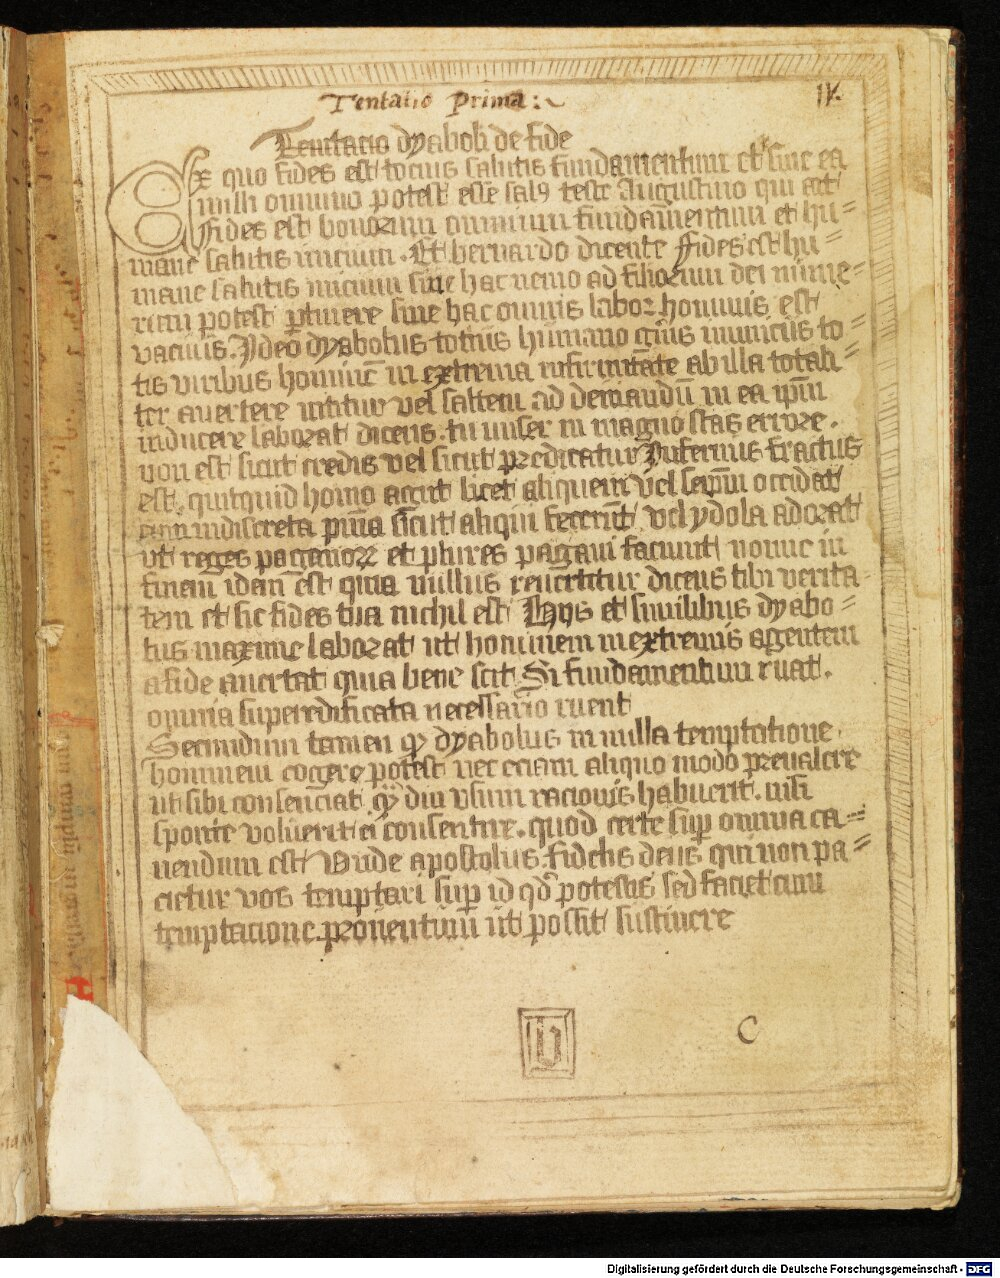 Tentatio Prima:
IV.
Temtacio dyaboli de fide
Ex quo fides est tocius salutis fundamentum et sine ea
nulli omnino potest esse salꝰ teste Augustino qui ait
fides est bonorum omnium fundamentum et hu=
mane salutis inicium. Et bernardo dicente fides est hu=
mane salutis inicium sine hac nemo ad filiorum dei nume=
rum potest ꝑtinere sine hac omnis labor hominis est
vacuus. Ideo dyabolus totius humano gn̄is inimicus to=
tis viribus hominē in extrema infirmitate ab illa totali=
ter avertere nititur vel saltem ad deviandū in ea ipm̄
inducere laborat dicens. tu miser in magno stas errore.
non est sicut credis vel sicut predicatur Infernus fractus
est. quitquid homo agat licet aliquem vel seipm̄ occidat
cum indiscreta pnīa sicut aliqui fecerūt vel ydola adorat
ut reges paganorꝝ et plures pagani faciunt nonne in
finem idem est quia nullus revertitur dicens tibi verita=
tem et sic fides tua nichil est Hys et similibus dyabo=
lus maxime laborat ut hominem in extremis agentem
a fide avertat quia bene scit Si fundamentum ruat.
omnia superedificata necessario ruent
Sciendum tamen qꝫ dyabolus in nulla temptatione
hominem cogere potest nec eciam aliquo modo prevalere
ut sibi consenciat qꝫ diu usum racionis habuerit. nisi
sponte voluerit ei consentire. quod certe sup̄ omnia ca=
vendum est Unde apostolus. fidelis deus qui non pa=
cietur vos temptari sup̄ id qd̓ potestis sed faciet cum
temptacione provientum ut possit sustinere
b
C
Digitalisierung gefördert durch die Deutsche Forschungsgemeinschaft - DFG